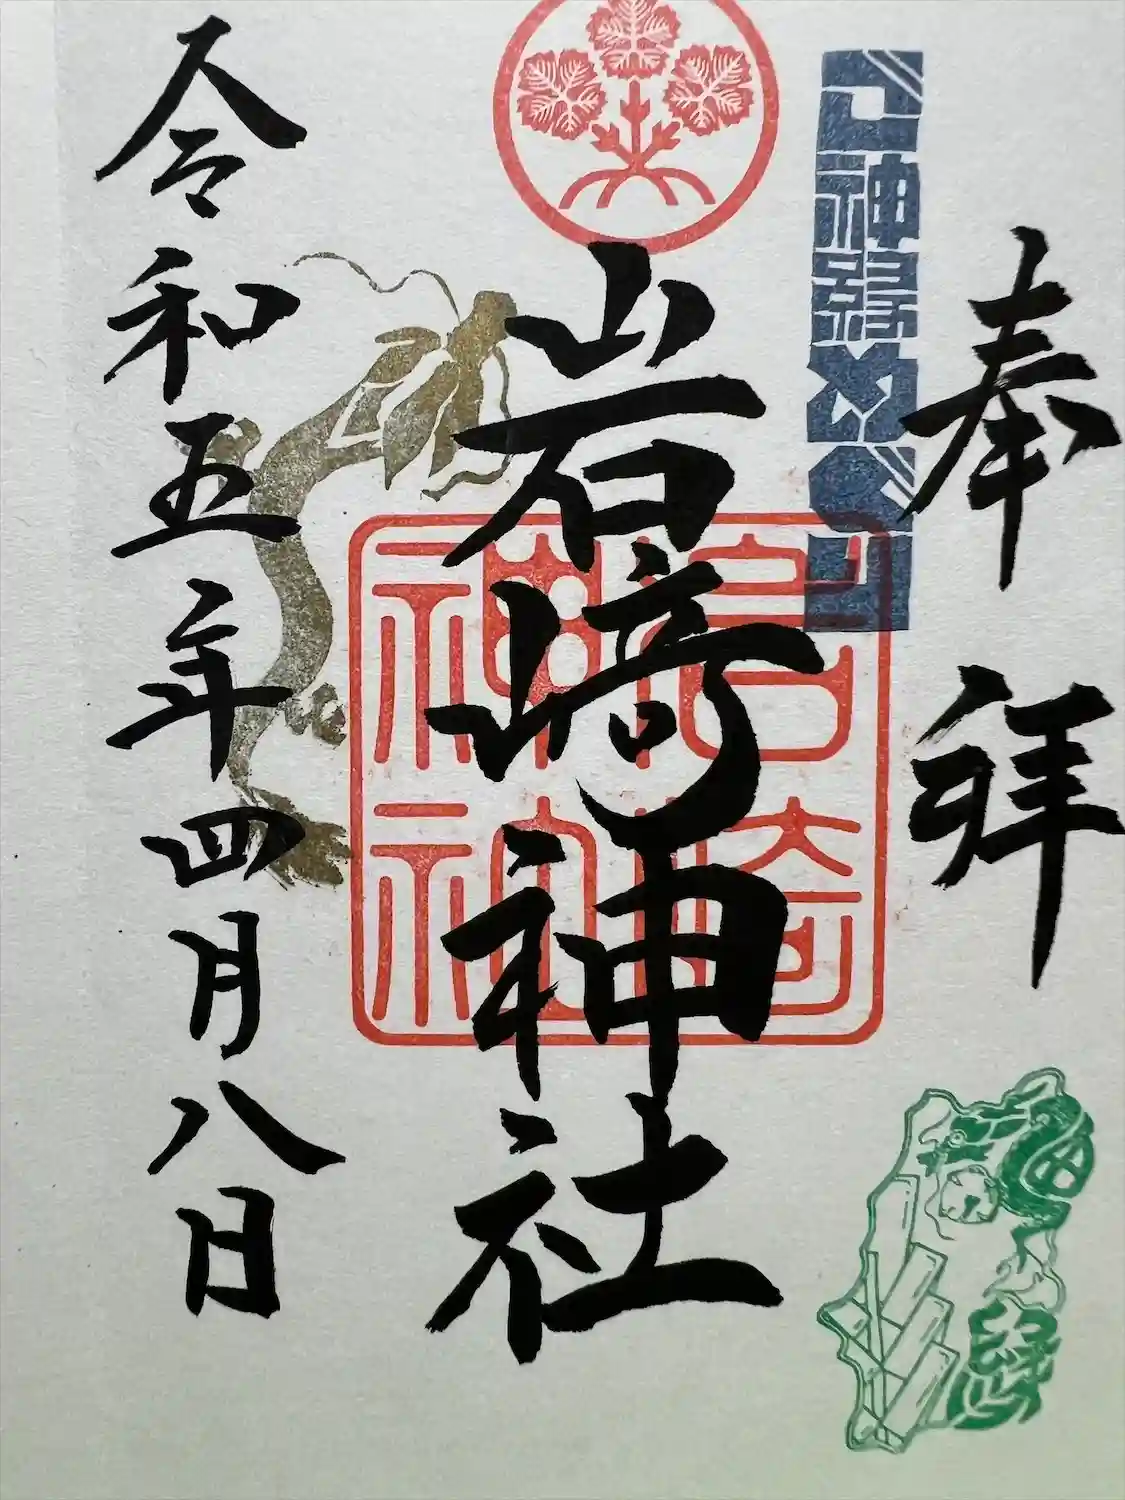 奉拝
神縁めぐり
岩崎神社
岩崎
神社
令和五年四月八日